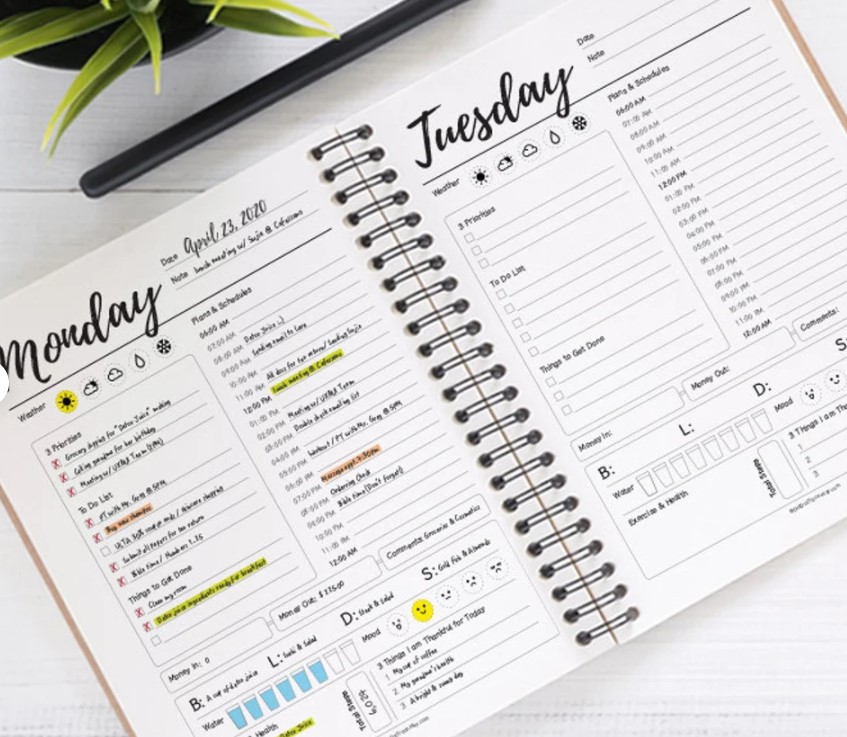 Monday
Date April 23, 2020
Note lunch meeting w/ Susie @
Weather
3 Priorities
Grocery shopping for "Detox Juice" making
Calling grandma for her birthday
Meeting w/ Team (2PM)
To Do List
PT with Mr. Greg @ 5PM
Buy new shampoo
ULTA 30% coupon only / skincare shopping
Submit all papers for tax return
Bible time / Numbers 1-25
Things to Get Done
Clean my room
Detox juice ingredients ready for breakfast
Plans & Schedules
06:00 AM
07:00 AM
08:00 AM Detox Juice :)
09:00 AM Sending email to Lane
10:00 AM
11:00 AM All docs for tax return/ Sending
12:00 PM Lunch meeting @
01:00 PM
02:00 PM Meeting w/ Team
03:00 PM Double check mailing list
04:00 PM
05:00 PM Workout / PT with Mr. Greg @ 5PM
06:00 PM
07:00 PM Massage appt. 7:30pm
08:00 PM Ordering Check
09:00 PM Bible time (Don't forget)
10:00 PM
11:00 PM
12:00 AM
Money In: 0
Money Out: $
Comments: Groceries & Cosmetics
B: A cup of detox juice
L: Sushi & Salad
D: Steak & Salad
S: Gold fish & Almonds
Water
Mood
Total Steps
3 Things I am Thankful for Today
1 My cup of coffee
2 My grandma's health
3 A bright & sunny day
Health
Detox Juice
Tuesday
Date
Note
Weather
3 Priorities
To Do List
Things to Get Done
Plans & Schedules
06:00 AM
07:00 AM
08:00 AM
09:00 AM
10:00 AM
11:00 AM
12:00 PM
01:00 PM
02:00 PM
03:00 PM
04:00 PM
05:00 PM
06:00 PM
07:00 PM
08:00 PM
09:00 PM
10:00 PM
11:00 PM
12:00 AM
Money In:
Money Out:
Comments:
B:
L:
D:
S:
Water
Mood
Total Steps
3 Things I am Than
1
2
3
Exercise & Health